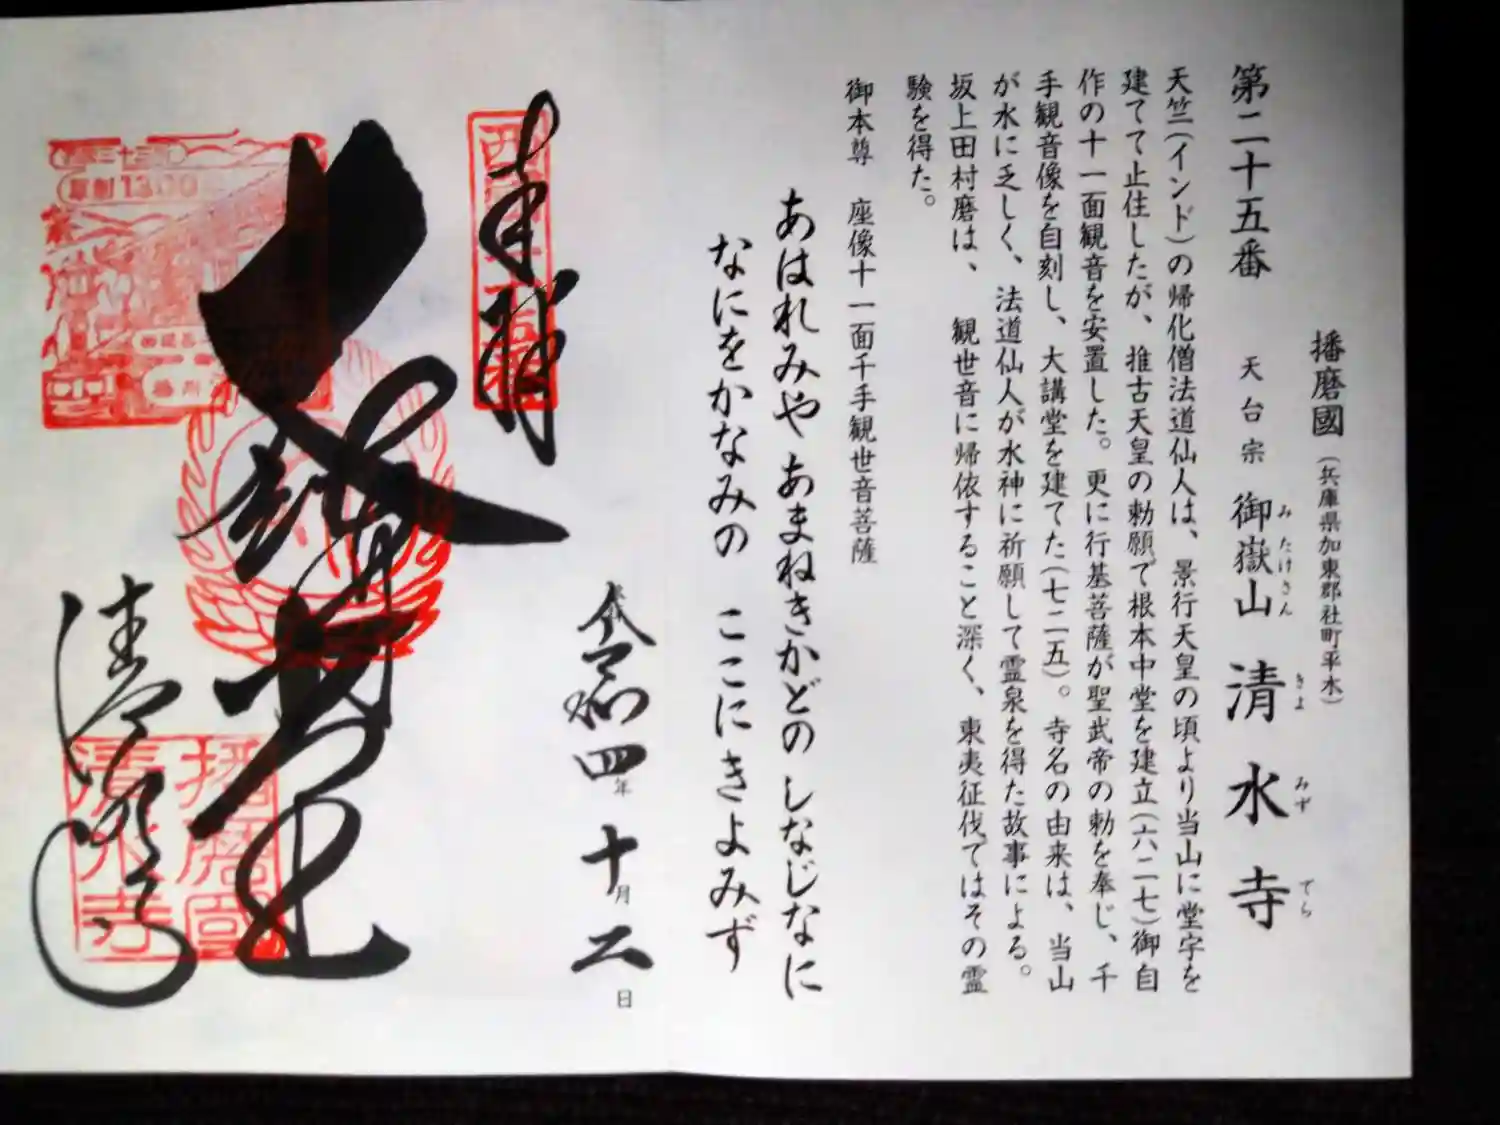 播磨國（兵庫県加東郡社町平木）
第二十五番　天台宗　御嶽山　清水寺
みたけさん　きよみずでら
天竺（インド）の帰化僧法道仙人は、景行天皇の頃より当山に堂宇を
建てて止住したが、推古天皇の勅願で根本中堂を建立（六二七）御自
作の十一面観音を安置した。更に行基菩薩が聖武帝の勅を奉じ、千
手観音像を自刻し、大講堂を建てた（七二五）。寺名の由来は、当山
が水に乏しく、法道仙人が水神に祈願して霊泉を得た故事による。
坂上田村磨は、観世音に帰依すること深く、東夷征伐ではその霊
験を得た。
御本尊　座像十一面千手観世音菩薩
あはれみや あまねきかどの しなじなに
なにをかなみの ここにきよみず
令和四年十月二日
奉拝
西国二十五番
大悲閣
清水寺
草創1300
播磨國
清水寺